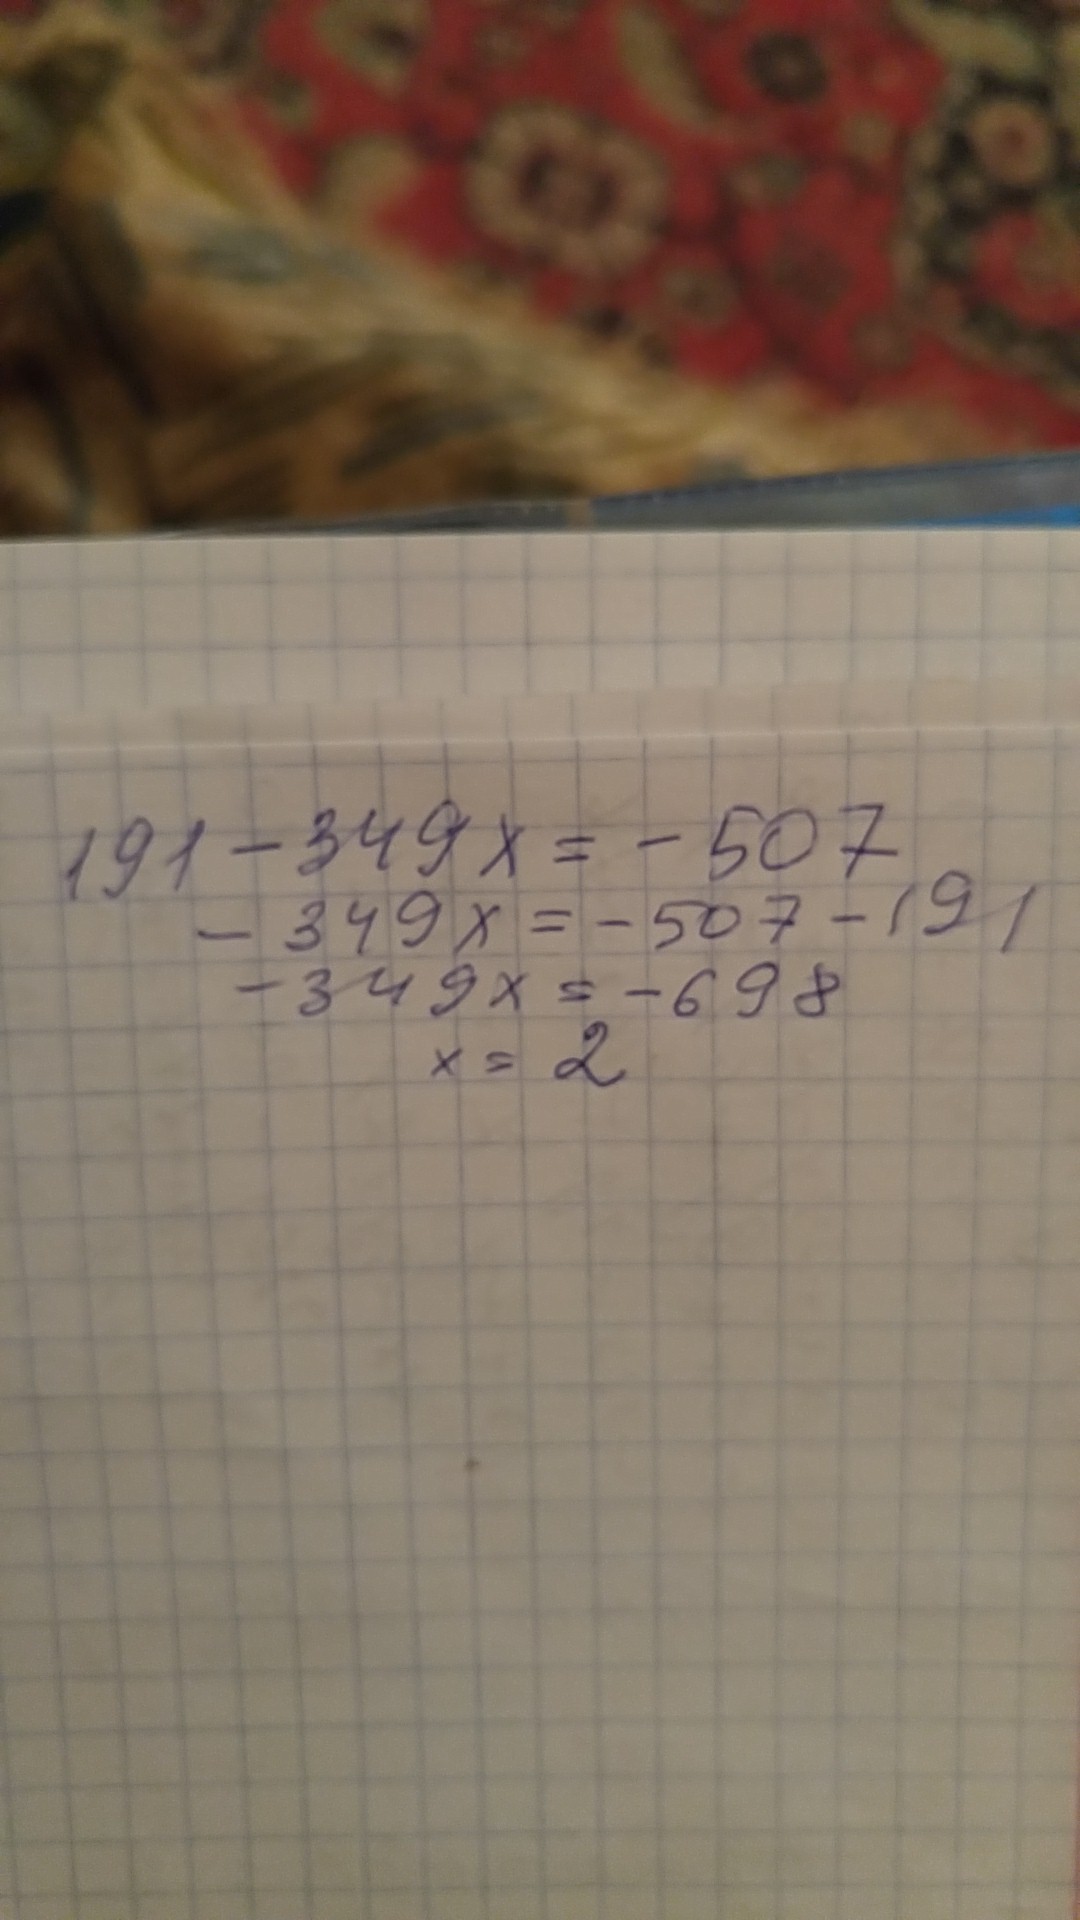 191-349x=-507
-349x=-507-191
-349x=-698
x=2